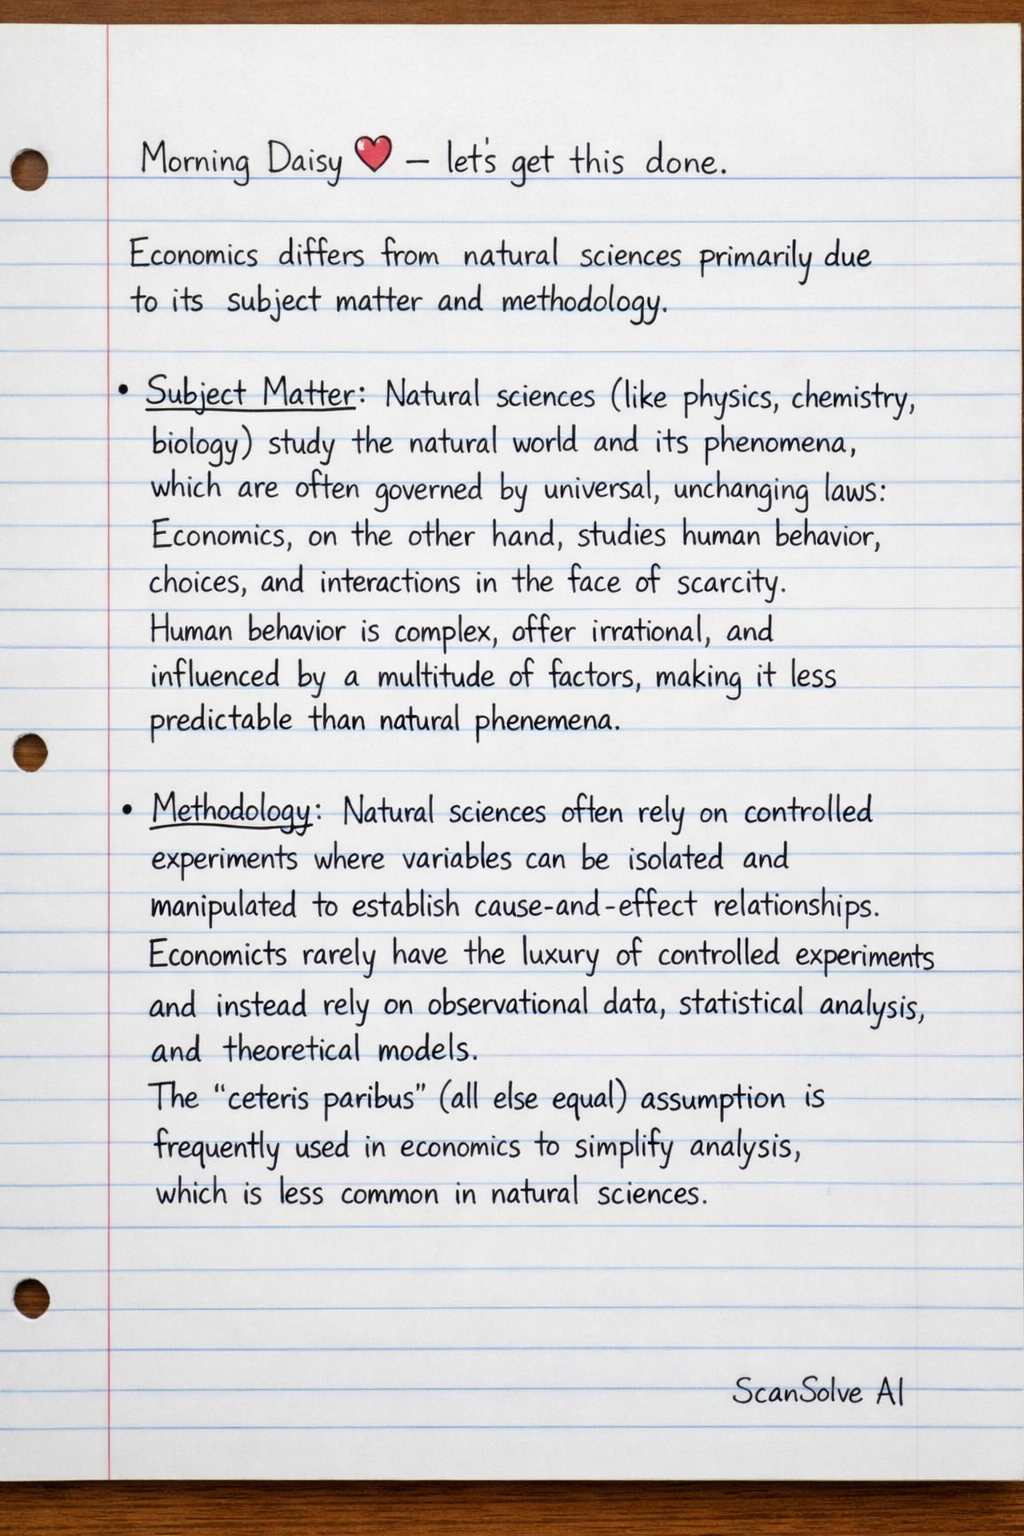 Morning Daisy ❤️ – let's get this done.
Economics differs from natural sciences primarily due
to its subject matter and methodology.
• Subject Matter: Natural sciences (like physics, chemistry,
biology) study the natural world and its phenomena,
which are often governed by universal, unchanging laws:
Economics, on the other hand, studies human behavior,
choices, and interactions in the face of scarcity.
Human behavior is complex, offer irrational, and
influenced by a multitude of factors, making it less
predictable than natural phenemena.
• Methodology: Natural sciences often rely on controlled
experiments where variables can be isolated and
manipulated to establish cause-and-effect relationships.
Economicts rarely have the luxury of controlled experiments
and instead rely on observational data, statistical analysis,
and theoretical models.
The “ceteris paribus” (all else equal) assumption is
frequently used in economics to simplify analysis,
which is less common in natural sciences.
ScanSolve AI